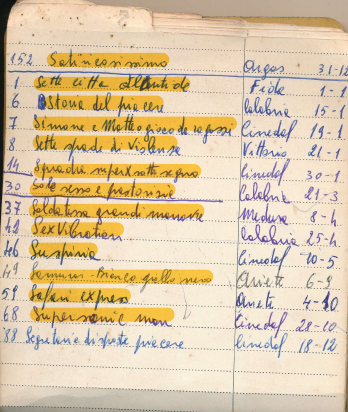 152 Satiricosissimo Orgos 31-12
1 Sette città Atlantide Fida 1-1
6 Storia del piacere Calabria 15-1
7 Simone e Matteo gioco da ragazzi Cinedaf 19-1
8 Sette spade di violenza Vittorio 21-1
14 Squadra super sotto segno Cinedaf 30-1
30 Sole sesso e pastorizia Calabria 21-3
37 Soldatessa grandi manovre Medusa 8-4
42 Sex Vibration Calabria 25-4
46 Suspiria Cinedaf 10-5
49 Samurai - Bianco giallo nero Ariete 6-9
59 Safari express Ariete 4-10
68 Supersonic man Cinedaf 28-10
88 Segretaria disposte piacere Cinedaf 18-12